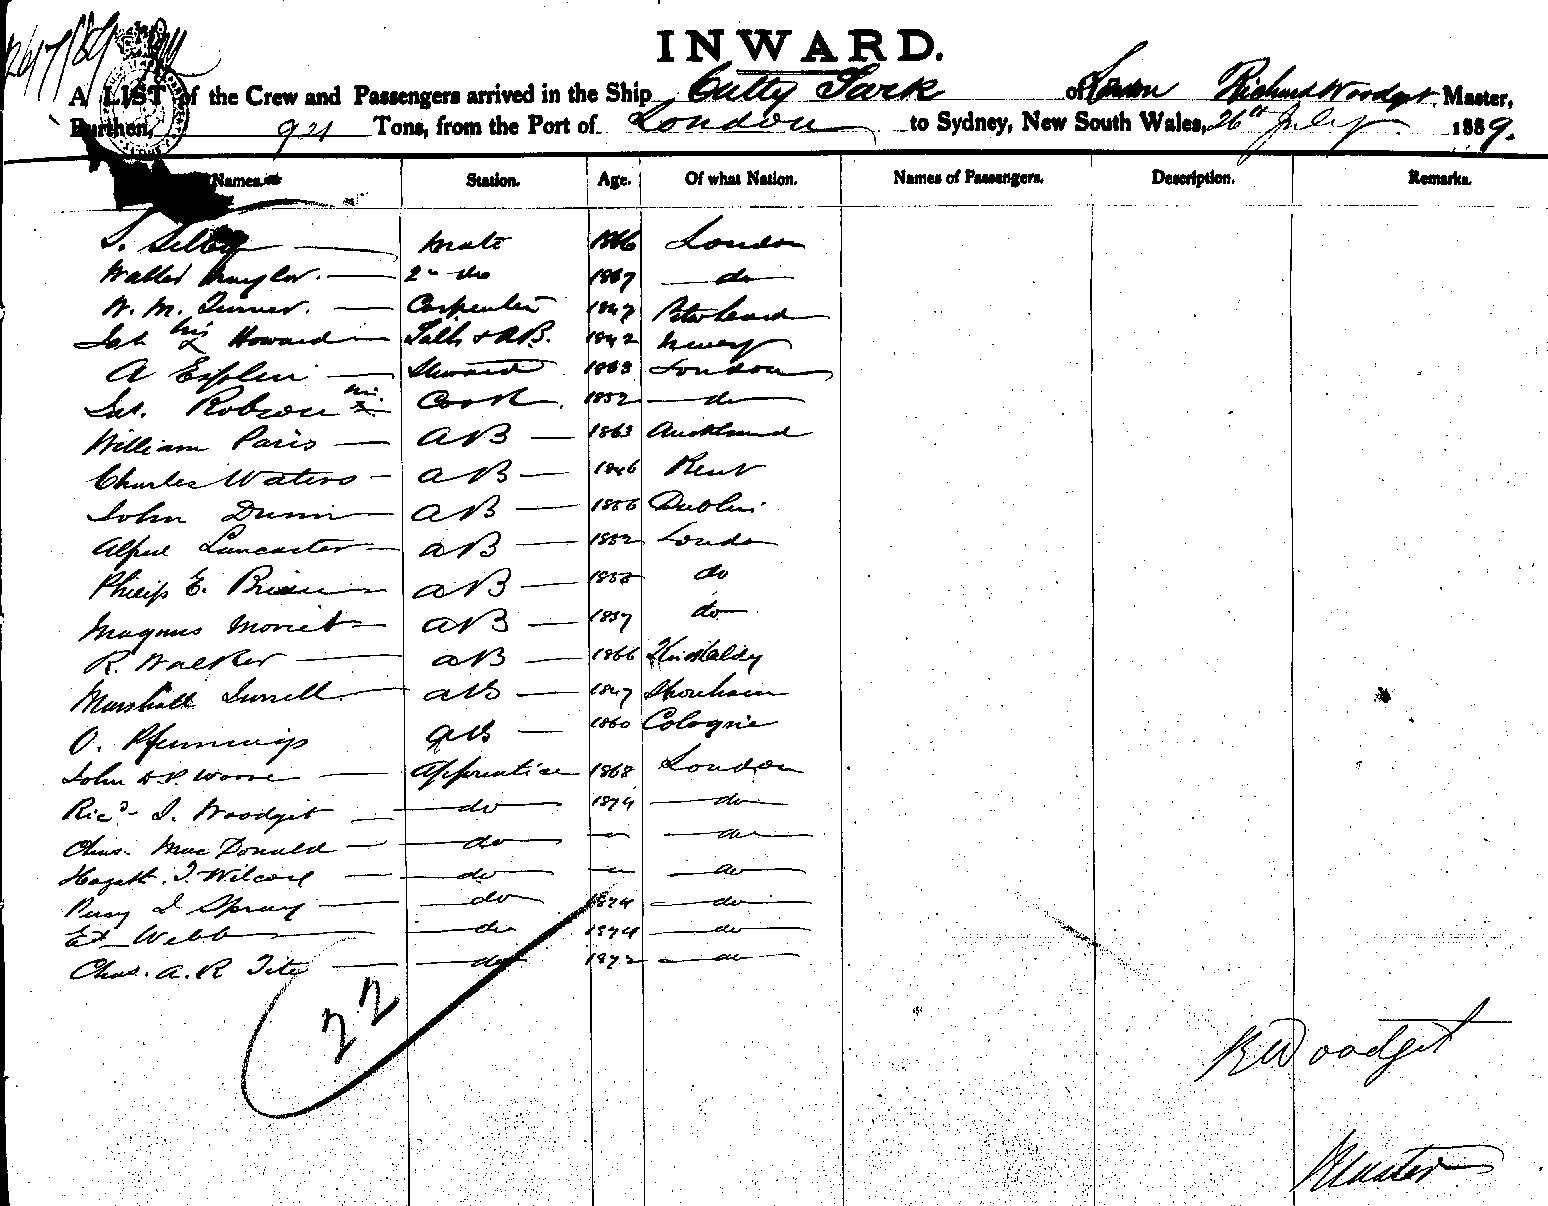 26/7/89
INWARD.
A LIST of the Crew and Passengers arrived in the Ship Cutty Sark of London Richard Woodget Master,
Burthen, 921 Tons, from the Port of London to Sydney, New South Wales, 26th July 1889.
Names. Station. Age. Of what Nation. Names of Passengers. Description. Remarks.
S. Selby mate 1866 London
Walter Naylor. 2nd do 1867 do
W. M. Turner. Carpenter 1847
Jas his x Howard Sailr & AB. 1842 Newry
A Esplin Steward 1863 London
Jas. Robson his x Cook 1852 do
William Paris AB 1863 Auckland
Charles Waters AB 1846 Kent
John Dunn AB 1856 Dublin
Alfred Lancaster AB 1852 London
Philip E. AB do
Magnus AB 1857 do
R. Walker AB 1866 Kirkcaldy
Marshall AB 1847 Shoreham
O. AB 1860 Cologne
John Apprentice 1868 London
Ricd. I. Woodget do 1874 do
Chas. Mac Donald do " do
T. Wilcox do " do
Percy Spray do 1874 do
Et Webb do 1874 do
Chas. A. R Tite do 1872 do
22
R Woodget
Master